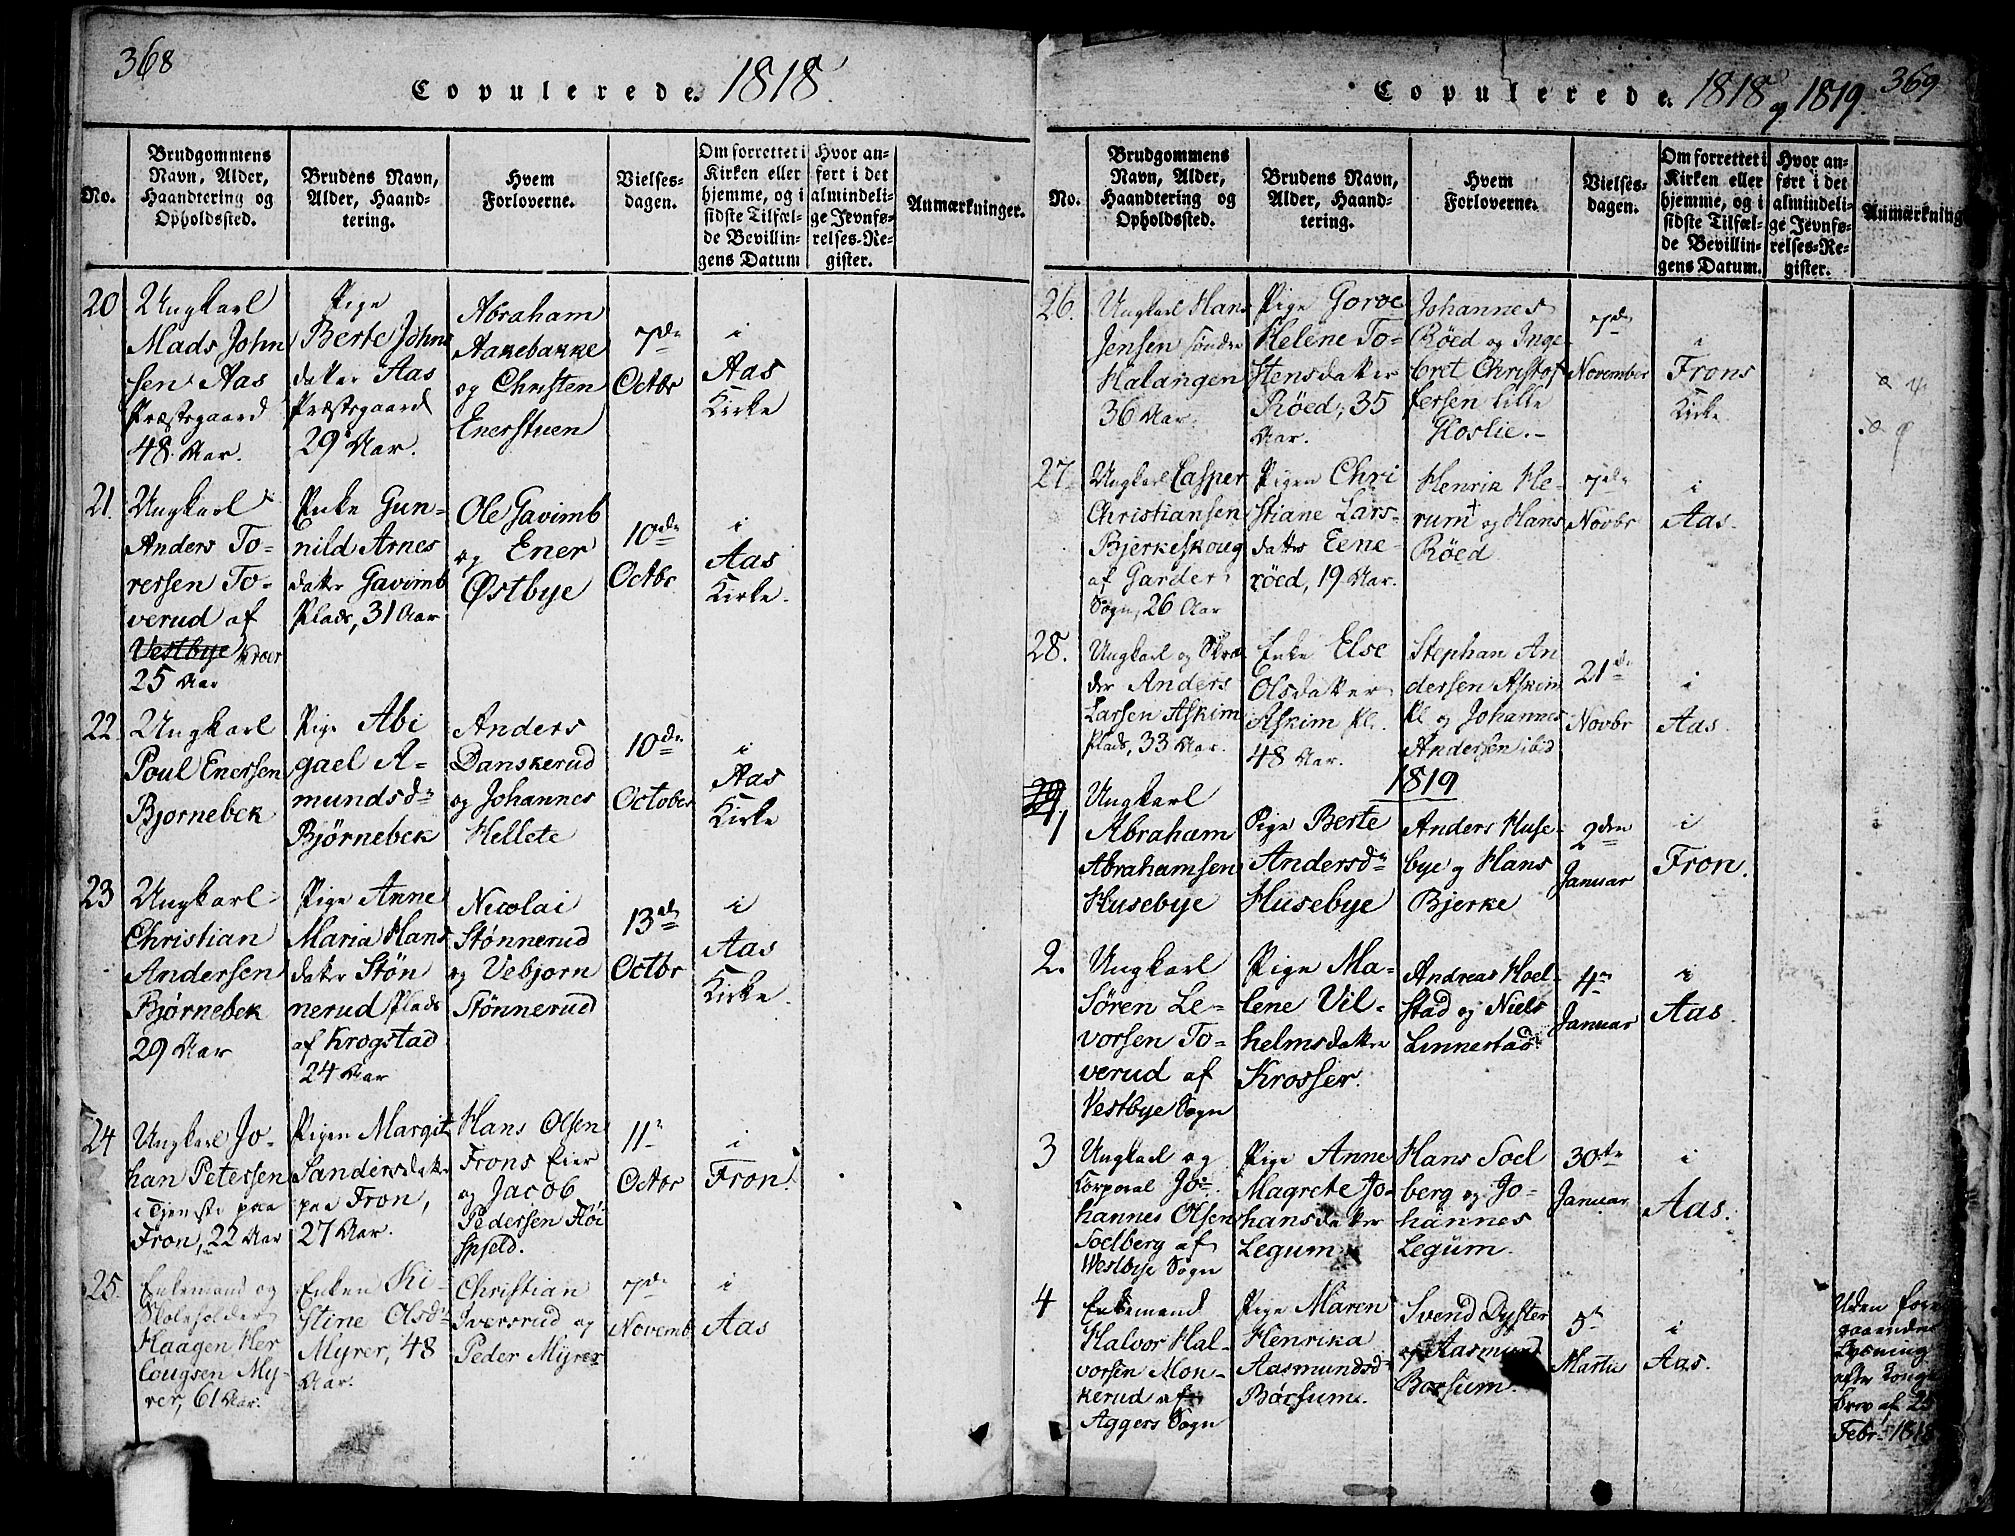 368
Copulerede 1818
No.
Brudgommens
Navn, Alder,
Haandtering og
Opholdssted.
Brudens Navn,
Alder, Haand-
tering.
Hvem
Forloverne.
Vielses-
dagen.
Om forrettet i
Kirken eller
hjemme, og i
sidste Tilfæl-
de Bevillin-
gens Datum
Hvor an-
ført i det
almindeli-
ge Jevnfø-
relses-Re-
gister.
Anmærkninger.
20
Ungkarl
Mads John
sen Aas
Præstegaard
48 Aar.
Pige
Berte Johns
datter Aas
Præstegaard
29 Aar.
Abraham
Aakebakke
og Christen
Enerstuen
7de
Octbr
i
Aas
Kirke
21.
Ungkarl
Anders To-
rersen To-
verud af
Vestbye Kroer
25 Aar
Enke Gun-
nild Arnes
datter Gavimb
Plads, 31 Aar
Ole Gavimb
og Ener
Østbye
10de
Octbr
i
Aas
Kirke.
22.
Ungkarl
Poul Enersen
Bjornebek
Pige Abi
gael A-
mundsdr
Bjørnebek
Anders
Danskerud
og Johannes
Hellete
10de
October
i
Aas
Kirke
23
Ungkarl
Christian
Andersen
Bjørnebek
29 Aar
Pige Anne
Maria Hans
datter Støn
nerud Plads
af Krogstad
24 Aar
Nicolai
Stønnerud
og Vebjorn
Stønnerud
13de
Octbr
i
Aas
Kirke.
24
Ungkarl Jo-
han Petersen
i Tjeneste paa
Fron, 22 Aar
Pigen Margit
Sandersdatter
paa Fron,
27 Aar.
Hans Olsen
Frons Eier
og Jacob
Pedersen Høi
spfeld.
11te
Octbr
i
Fron.
25.
Enkemand og
Skoleholder
Haagen Her
lougsen My-
rer, 61 Aar.
Enken Ki-
stine Olsdr
Myrer, 48
Aar.
Christian
Iversrud og
Peder Myrer
7de
Novemb
i
Aas
Copulerede. 1818 og 1819. 369
No.
Brudgommens
Navn, Alder,
Haandtering og
Opholdssted.
Brudens Navn,
Alder, Haand-
tering.
Hvem
Forloverne.
Vielses-
dagen.
Om forrettet i
Kirken eller
hjemme, og i
sidste Tilfæl-
de Bevillin-
gens Datum.
Hvor an-
ført i det
almindeli-
ge Jevnfø-
relses-Re-
gister.
Anmærkning
26.
Ungkarl Hans
Jensen søndre
Halangen
36 Aar.
Pige Gorve
Helene To-
stensdatter
Röed, 35
Aar.
Johannes
Röed og Inge-
bret Christof
fersen lille
Hoslie.
7de
November
i
Frons
Kirke
27.
Ungkarl Casper
Christiansen
Bjerkeskoug
af Garder
Sogn, 26 Aar
Pigen Chri
stiane Lars-
datter Eene-
röed, 19 Aar.
Henrik He-
rum og Hans
Röed
7de
Novbr
i
Aas.
28.
Ungkarl og Skræ
der Anders
Larsen Askim
Plads, 33 Aar.
Enke Else
Olsdatter
Askim Pl.
48 Aar.
Stephan An
dersen Askim
Pl og Johannes
Andersen ibid
21de
Novbr
i
Aas
1819
29 1
Ungkarl
Abraham
Abrahamsen
Husebye
Pige Berte
Andersdr
Husebye
Anders Huse-
bye og Hans
Bjerke
2den
Januar
i
Fron.
2.
Ungkarl
Søren Le-
vorsen To-
verud af
Vestbye Sogn
Pige Ma-
lene Vil-
helmsdatter
Krosser.
Andreas Hoel-
stad og Niels
Linnestad
4de
Januar
i
Aas.
3
Ungkarl og
Corporal Jo-
hannes Olsen
Soelberg af
Westbye Sogn
Pige Anne
Magrete Jo-
hansdatter
Legum
Hans Soel
berg og Jo-
hannes
Legum.
30te
Januar
i
Aas.
4
Enkemand
Halvor Hal-
vorsen Mon-
kerud af
Aggers Sogn
Pige Maren
Henrika
Aasmundsd
Børsum.
Svend Dyster
og Aasmund
Borsum.
5te
Martii
i
Aas.
Uden fore
gaaende
Lysning
efter Konge
brev af 25
Febr. 1818